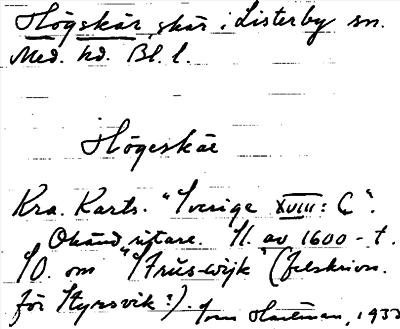 Högskär skär i Listerby sn.
Med. hd. Bl. l.
Högeskär
Kra. Karts. "Sverige XVIII: C".
Okänd ritare. Sl. av 1600-t.
SO. om "Strüs-wijk" (felskrivn.
för Styrsvik?). 1933